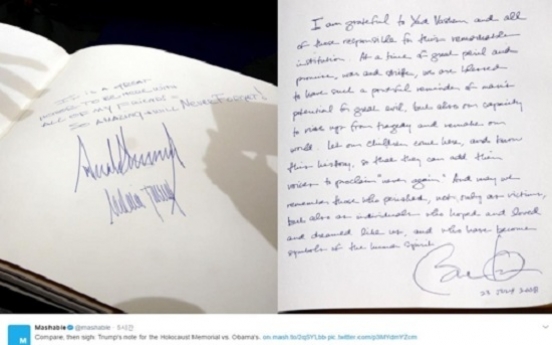 IT IS A GREAT
HONOR TO BE HERE WITH
ALL OF MY FRIENDS -
SO AMAZING + WILL NEVER FORGET!
I am grateful to Yad Vashem and all
of those responsible for this remarkable
institution. At a time of great peril and
promise, war and strife, we are blessed
to have such a powerful reminder of man's
potential for great evil, but also our capacity
to rise up from tragedy and remake our
world. Let our children come here, and know
this history, so that they can add their
voices to proclaim "never again." And may we
remember those who perished, not only as victims,
but also as individuals who hoped and loved
and dreamed like us, and who have become
symbols of the human spirit.
23 July 2008
Mashable @mashable
Compare, then sigh: Trump's note for the Holocaust Memorial vs. Obama's.